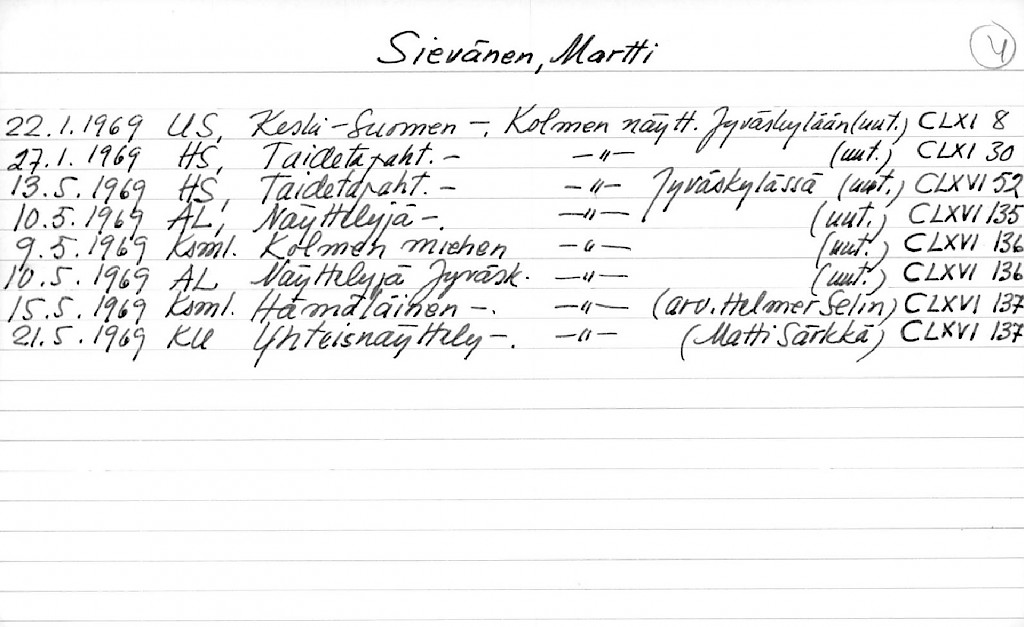 Sievänen, Martti 4
22.1.1969 US, Keski-Suomen -, Kolmen näytt. Jyväskylään (uut.) CLXI 8
27.1.1969 HS, Taidetapaht. - -"- (uut.) CLXI 30
13.5.1969 HS, Taidetapaht. - -"- Jyväskylässä (uut.) CLXVI 52
10.5.1969 AL, Näyttelyjä -. -"- (uut.) CLXVI 135
9.5.1969 Ksml. Kolmen miehen -"- (uut.) CLXVI 136
10.5.1969 AL Näyttelyjä Jyväsk. -"- (uut.) CLXVI 136
15.5.1969 Ksml. Hämäläinen -. -"- (arv. Helmer Selin) CLXVI 137
21.5.1969 KU Yhteisnäyttely -. -"- (Matti Särkkä) CLXVI 137